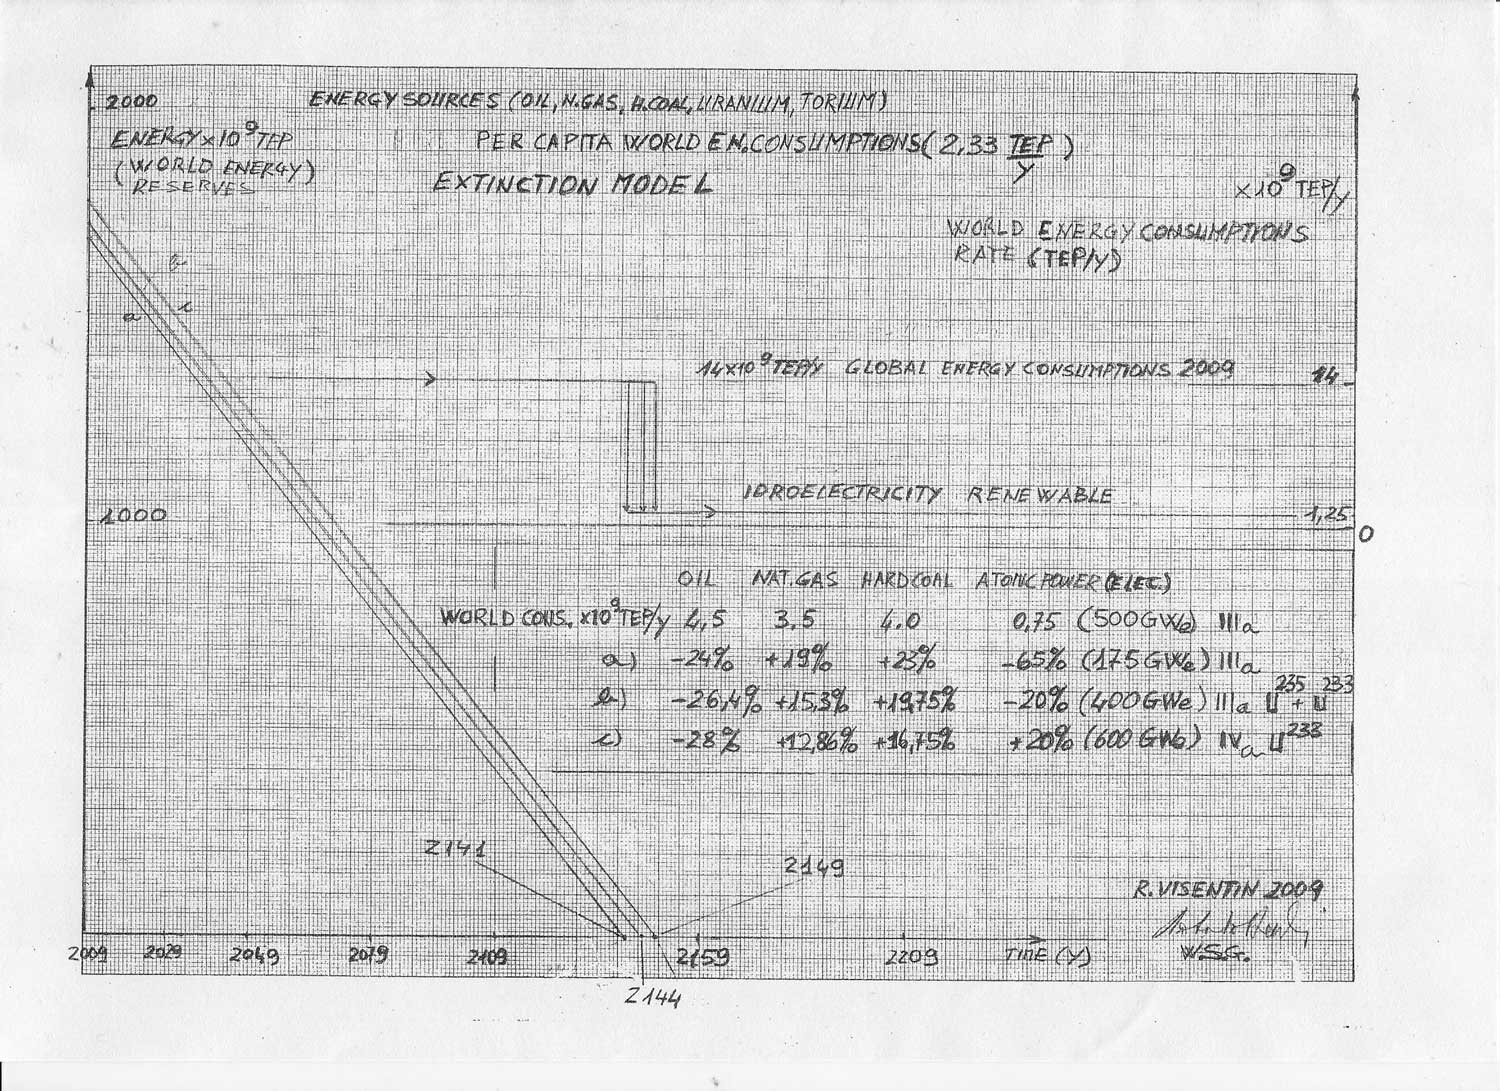 2000
ENERGY SOURCES (OIL, N.GAS, H.COAL, URANIUM, TORIUM)
ENERGY x10⁹ TEP
(WORLD ENERGY)
RESERVES
PER CAPITA WORLD EN. CONSUMPTIONS (2,33 TEP/Y)
EXTINCTION MODEL
x10⁹ TEP/y
WORLD ENERGY CONSUMPTIONS
RATE (TEP/Y)
b
c
a
14x10⁹ TEP/y GLOBAL ENERGY CONSUMPTIONS 2009 14
IDROELECTRICITY RENEWABLE
1000
1,25
0
OIL NAT.GAS HARDCOAL ATOMIC POWER (ELEC.)
WORLD CONS. x10⁹ TEP/y 4,5 3.5 4.0 0,75 (500GWe) IIIa
a) -24% +19% +23% -65% (175GWe) IIIa
b) -26,4% +15,3% +19,75% -20% (400GWe) IIIa U²³⁵ + U²³³
c) -28% +12,86% +16,75% +20% (600 GWe) IVa U²³³
2141
2149
R. VISENTIN 2009
W.S.G.
2009 2029 2049 2079 2109 2159 2209 TIME (Y)
2144